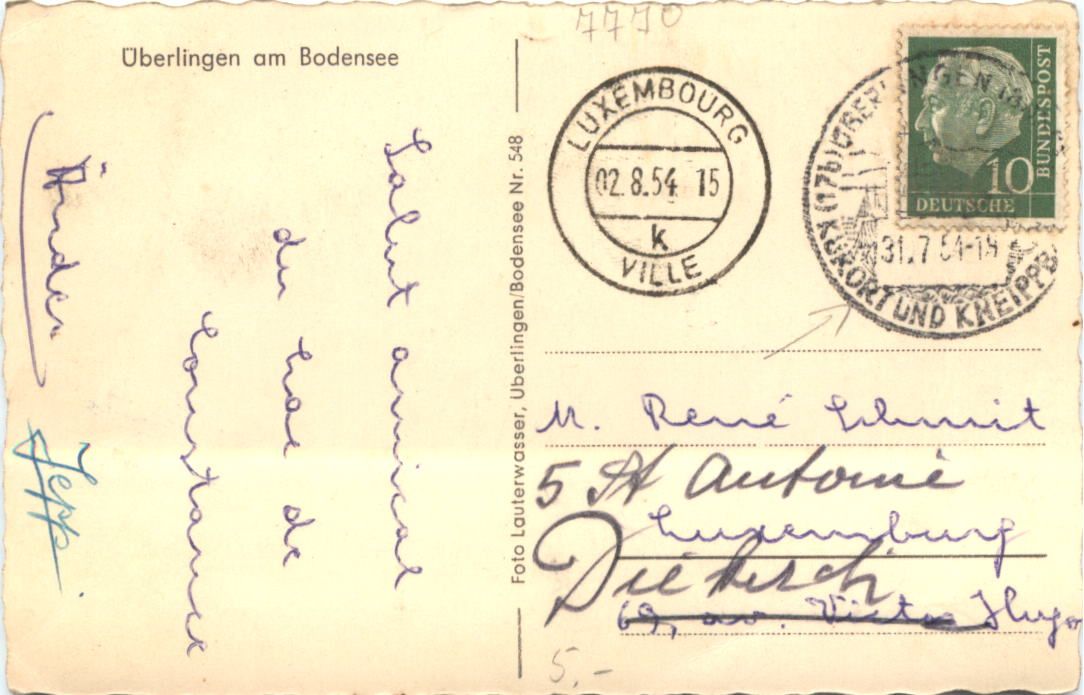 7770
Überlingen am Bodensee
Salut amical
du lac de
Constance
Jepp
Foto Lauterwasser, Überlingen/Bodensee Nr. 548
LUXEMBOURG
02.8.54 15
k
VILLE
(17b) ÜBERLINGEN
31.7.54-18
KURORT UND KNEIPPB
BUNDESPOST
10
DEUTSCHE
M. René Schmit
5 St Antoine
Luxemburg
Diekirch
69, av. Victor Hugo
5,-